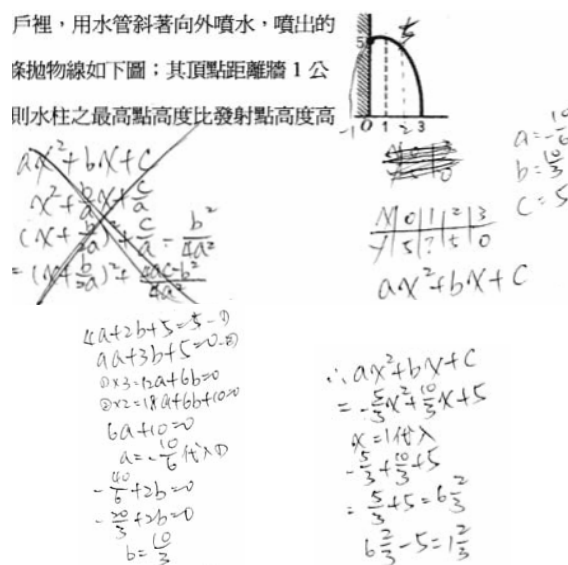 戶裡，用水管斜著向外噴水，噴出的
條拋物線如下圖；其頂點距離牆 1 公
則水柱之最高點高度比發射點高度高
5
5
-1 0 1 2 3
ax²+bx+c
x²+b/a x+c/a
(x+b/2a)²+c/a-b²/4a²
=(x+b/2a)²+4ac-b²/4a²
a=-10/6
b=10/3
c=5
x 0 1 2 3
y 5 ? 5 0
ax²+bx+c
4a+2b+5=5-①
9a+3b+5=0-②
①x3=12a+6b=0
②x2=18a+6b+10=0
6a+10=0
a=-10/6代入①
-40/6+2b=0
-20/3+2b=0
b=10/3
∴ax²+bx+c
=-5/3x²+10/3x+5
x=1代入
-5/3+10/3+5
=5/3+5=6 2/3
6 2/3-5=1 2/3